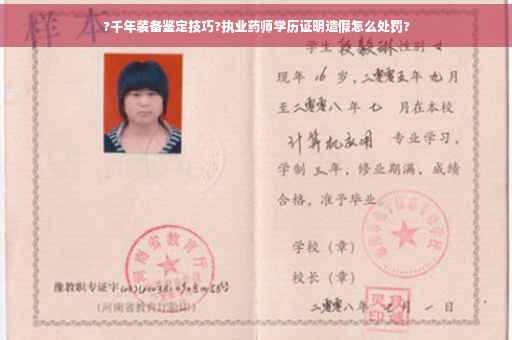 ?千年装备鉴定技巧?执业药师学历证明造假怎么处罚?
样本
学生 段毅琳 性别 女
现年 16 岁,二零零五年 九月
至二零零八年 七 月在本校
计算机应用 专业学习,
学制 三 年,修业期满,成绩
合格,准予毕业
学校(章)
校长(章)
二零零八年 七 月 一 日
河南省教育厅
豫教职专证字
(河南省教育厅验印)